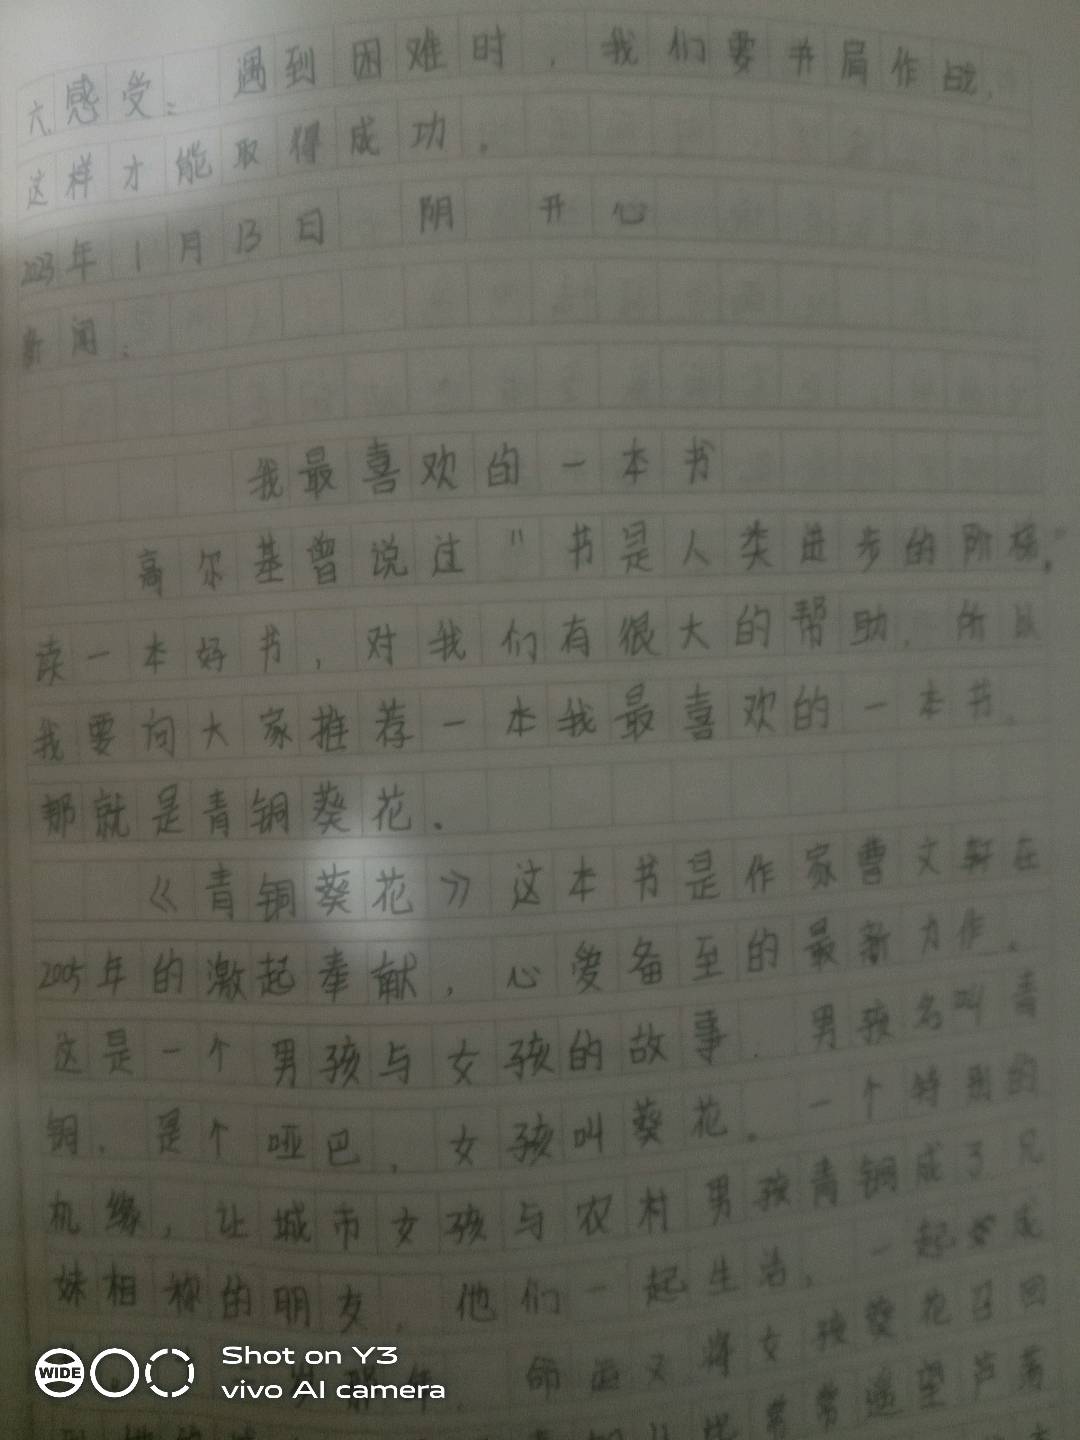 六感受：遇到困难时，我们要并肩作战，
这样才能取得成功。
2023年1月13日 阴 开心
新闻：
我最喜欢的一本书
高尔基曾说过"书是人类进步的阶梯。"
读一本好书，对我们有很大的帮助，所以
我要向大家推荐一本我最喜欢的一本书。
那就是青铜葵花。
《青铜葵花》这本书是作家曹文轩在
2005年的激起奉献，心爱备至的最新力作。
这是一个男孩与女孩的故事。男孩名叫青
铜，是个哑巴，女孩叫葵花。一个特别的
机缘，让城市女孩与农村男孩青铜成了兄
妹相称的朋友，他们一起生活，一起
岁那年，命运又将女孩葵花召回
常常遥望芦荡
WIDE
Shot on Y3
vivo AI camera